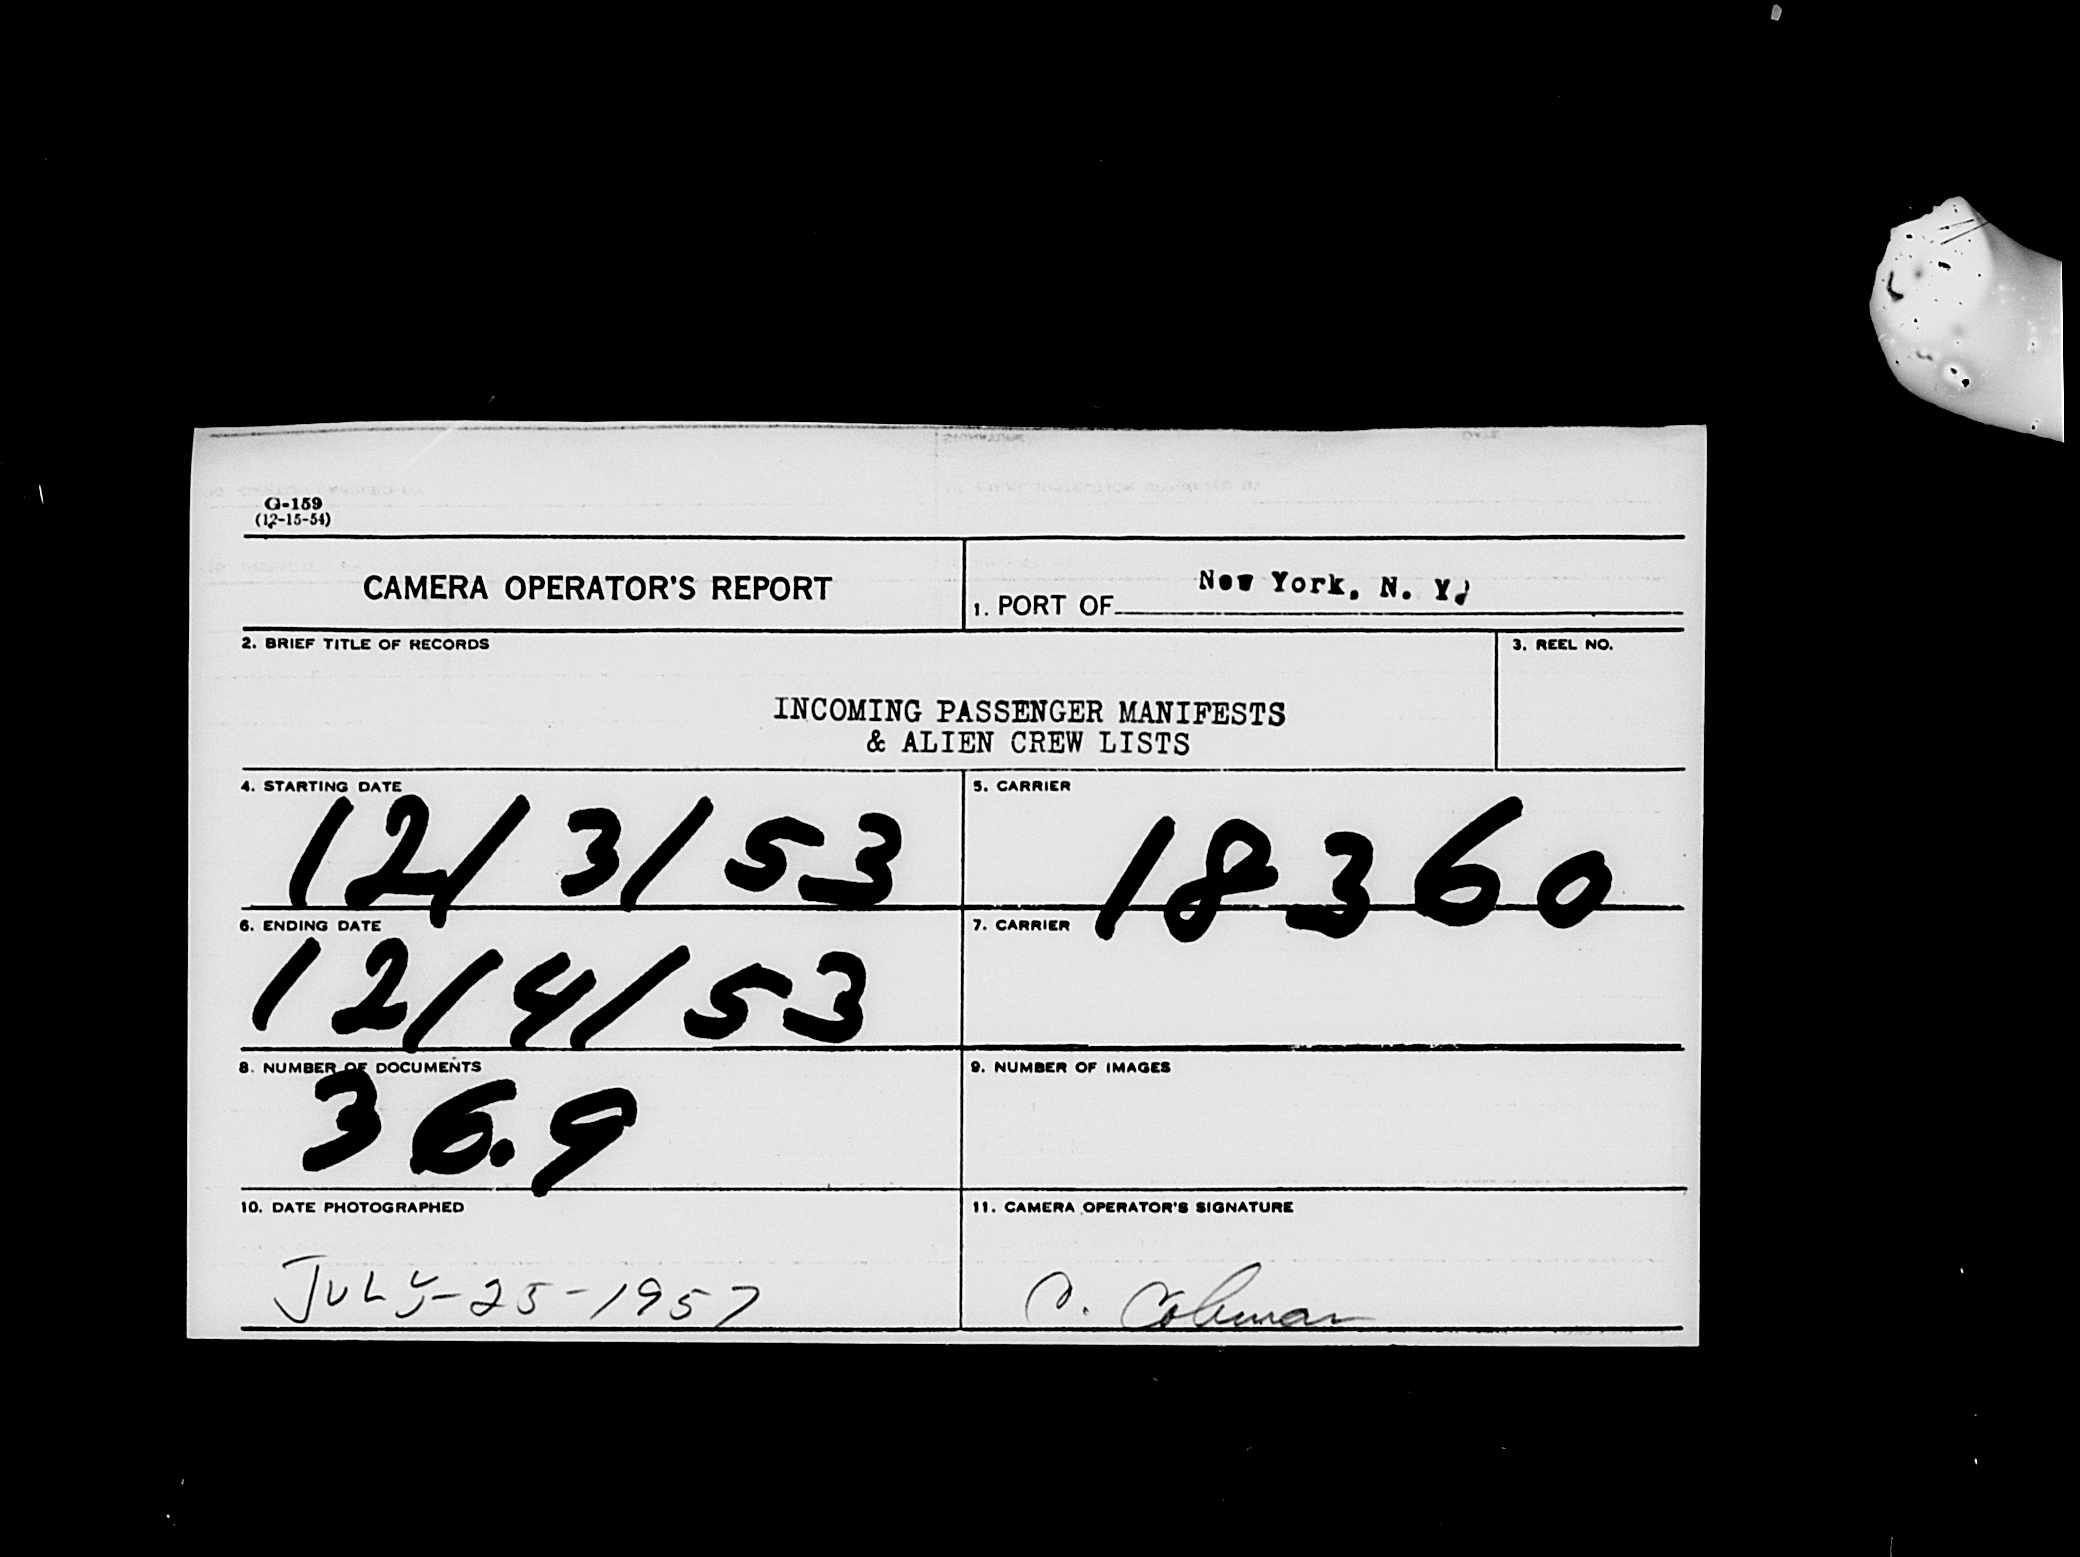 G-159
(12-15-54)
CAMERA OPERATOR'S REPORT
1. PORT OF New York, N. Y.
2. BRIEF TITLE OF RECORDS
3. REEL NO.
INCOMING PASSENGER MANIFESTS
& ALIEN CREW LISTS
4. STARTING DATE
12/3/53
5. CARRIER
18360
6. ENDING DATE
12/4/53
7. CARRIER
8. NUMBER OF DOCUMENTS
36.9
9. NUMBER OF IMAGES
10. DATE PHOTOGRAPHED
JULY-25-1957
11. CAMERA OPERATOR'S SIGNATURE
C. Coleman